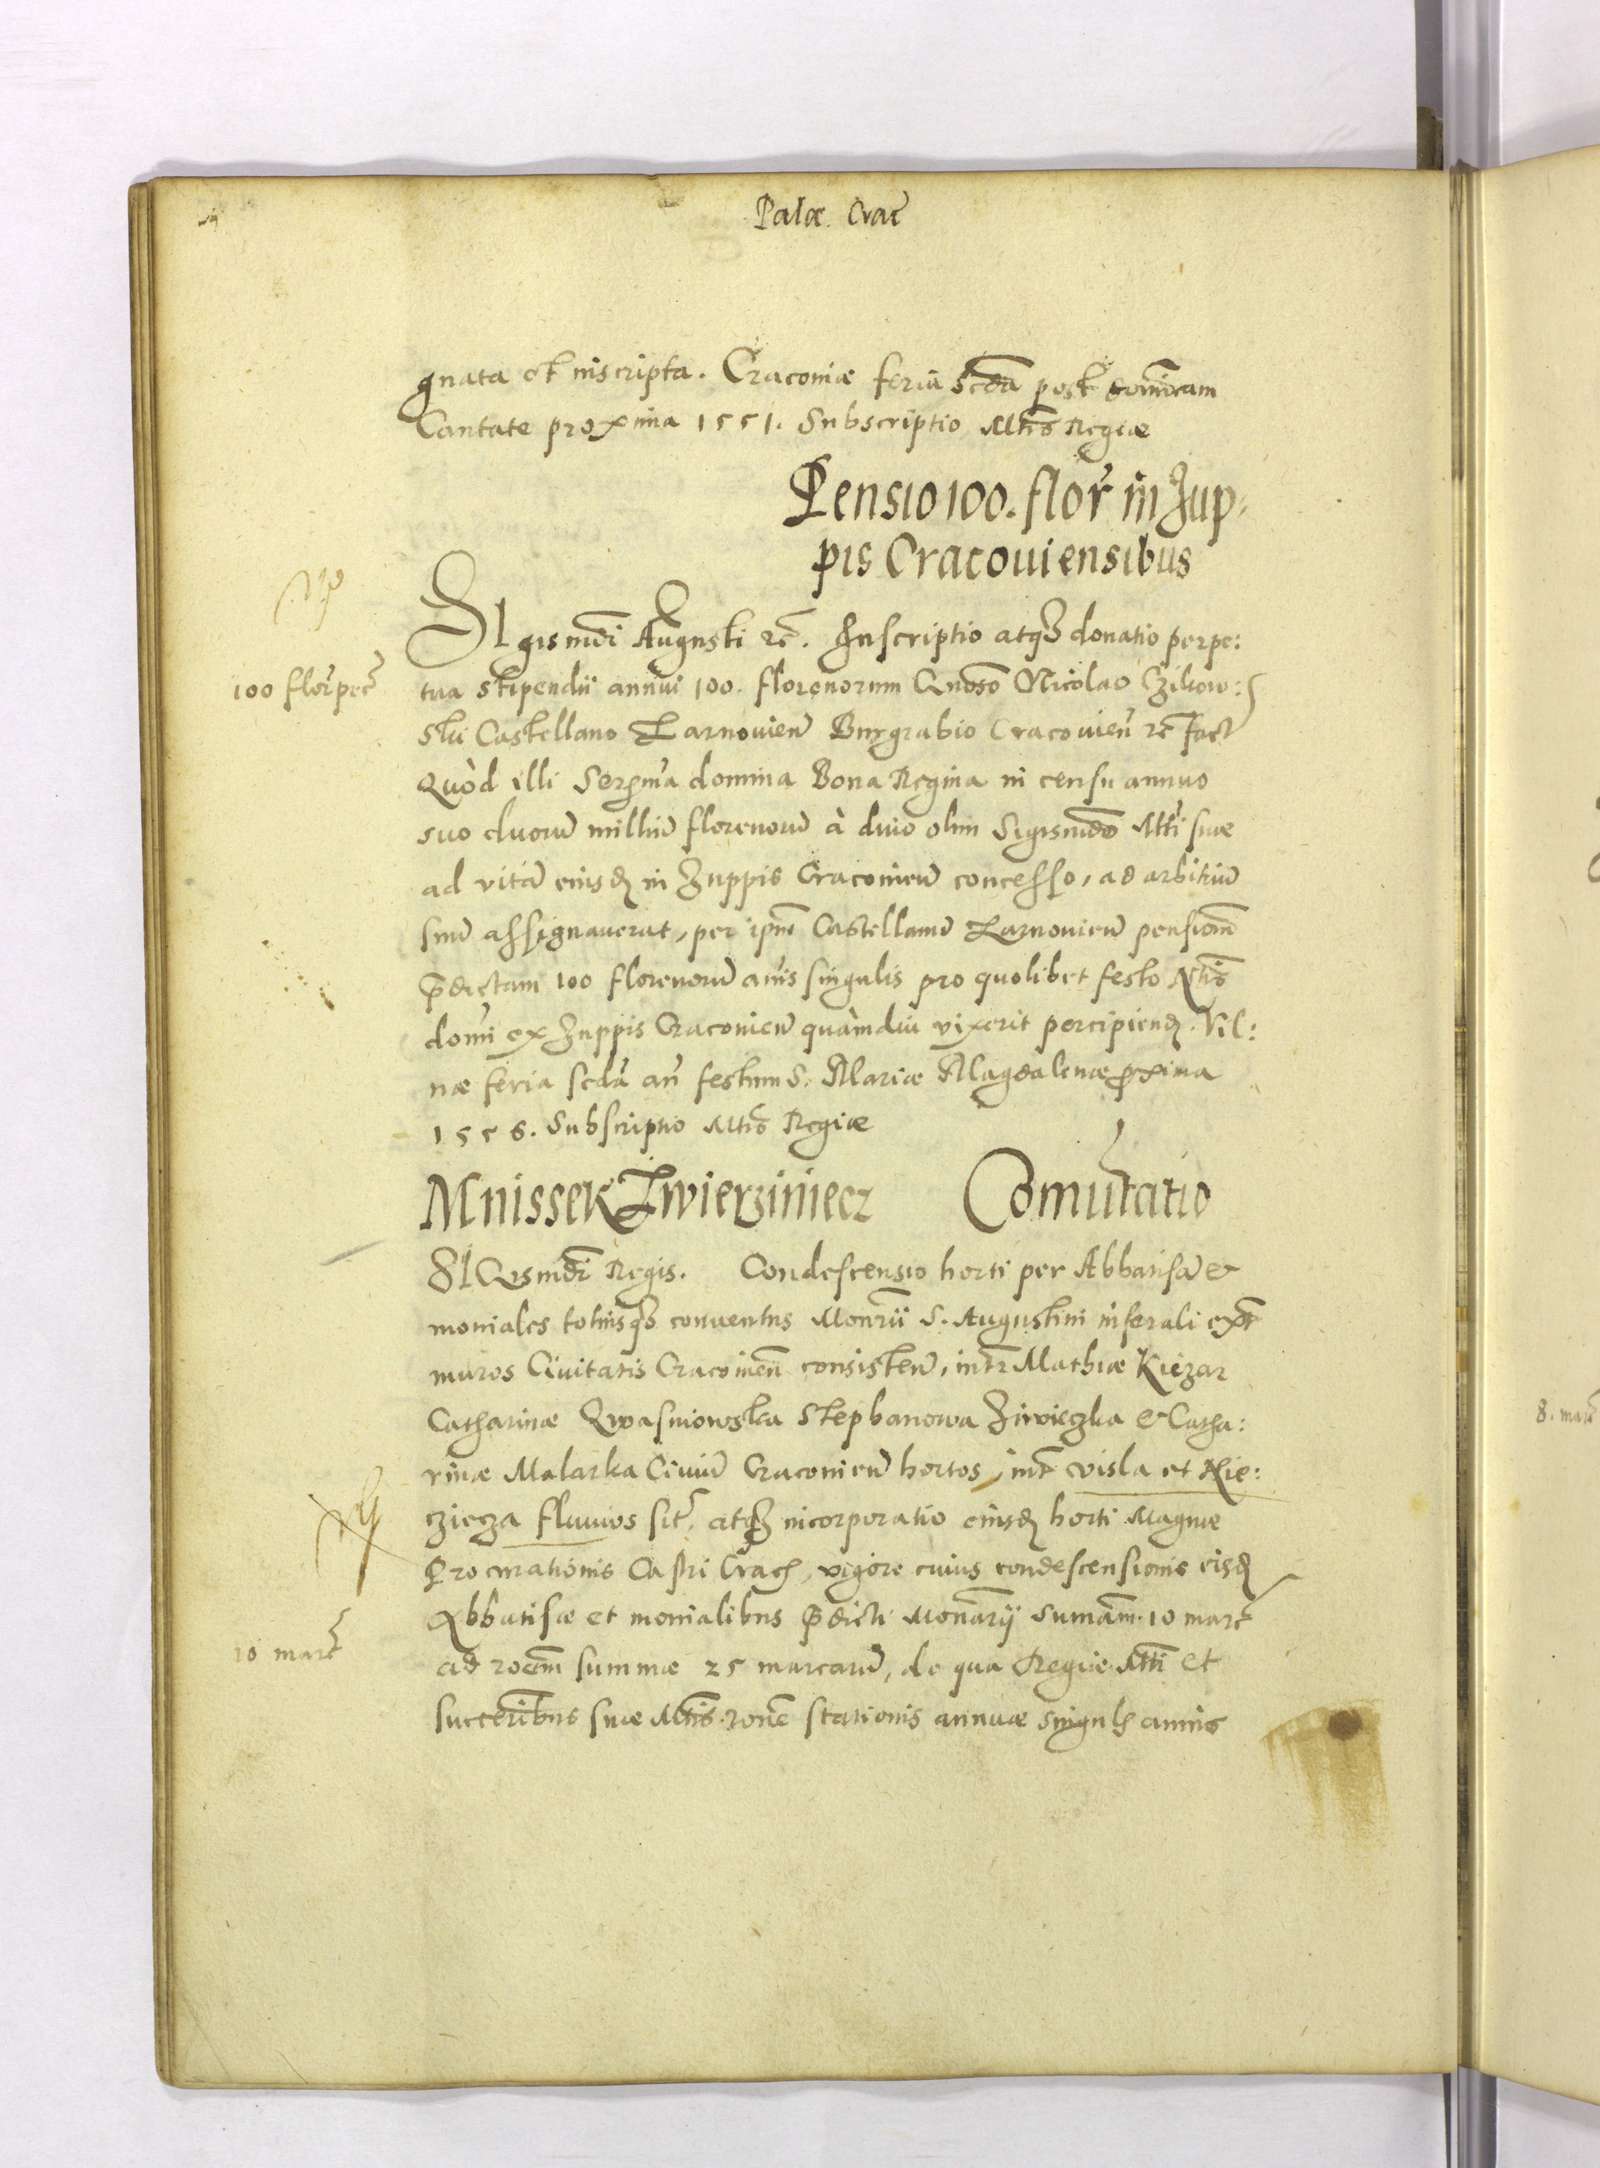 Palae. Crac̃
gnata et inscripta. Cracoviae feria scda post dominicam
Cantate proxima 1551. Subscriptio Mtis Regiae
Pensio 100. flor in Zup-
pis Cracouiensibus
SIgismdi Augusti etc. Inscriptio atqz donatio perpe:
100 flor pec
tua stipendii annui 100. florenorum Gnoso Nicolao Czikow:
ski Castellano Tarnovien Burgrabio Cracovien etc fact
Quòd illi Serma domina Bona Regina in censu annuo
suo duoru milliu florenoru à divo olim Sigismdo Mtti suae
ad vitã eiusdz in Zuppis Cracovien concesso, ad arbitriũ
suu assignauerat, per ipm Castellanu Tarnovien pensionẽ
p̃dictam 100 florenoru anis singulis pro quolibet festo Ntis
domi ex Zuppis Cracovien quàmdiu vixerit percipiendz. Vil:
nae feria scda an festum S. Mariae Magdalenae proxima
1556. Subscriptio Mtis Regiae
Mnissek Zwierziniecz Comutatio
SIGismdi Regis. Condescensio horti per Abbatisã et
moniales totiusqz conventus Monrii S. Augustini inferali ext
muros Civitatis Cracovien consisten, intr Mathiae Kiczar
Catharinae Qwasniowska Stephanowa Ziwieczka et Catha:
rinae Malarka Civiũ Cracovien hortos, int visla et Nie:
cziecza fluvios sit, atqz incorporatio eiusdz horti Magnae
Procurationis Castri Crac, vigore cuius condescensionis eisdz
Abbatisae et monialibus p̃dicti Monarij Sumam 10 marc
10 marc
ad roem summae 25 marcarũ, de qua Regiae Mtti et
succeribus suae Mtis rone stationis annuae singulis annis
8. marc